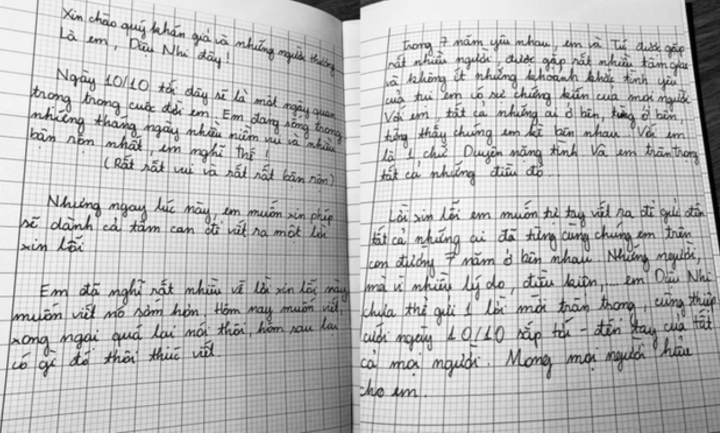 Xin chào quý khán giả và những người thương
Là em, Diệu Nhi đây!
Ngày 10/10 tới đây sẽ là một ngày quan
trọng trong cuộc đời em. Em đang sống trong
những tháng ngày nhiều niềm vui và nhiều
bận rộn nhất, em nghĩ thế!
(Rất rất vui và rất rất bận rộn)
Nhưng ngay lúc này, em muốn xin phép
sẽ dành cả tâm can để viết ra một lời
xin lỗi
Em đã nghĩ rất nhiều về lời xin lỗi này
muốn viết nó sớm hơn, hôm nay muốn viết,
xong ngại quá lại nói thôi, hôm sau lại
có gì đó thôi thúc viết.
Trong 7 năm yêu nhau, em và Tú được gặp
rất nhiều người, được gặp rất nhiều tâm giao
và không ít những khoảnh khắc tình yêu
của tụi em có sự chứng kiến của mọi người
Với em, tất cả những ai ở bên, từng ở bên,
từng thấy chúng em kề bên nhau. Với em
là 1 chữ Duyên nặng tình. Và em trân trọng
tất cả những điều đó.
Lời xin lỗi em muốn tự tay viết ra để gửi đến
tất cả những ai đã từng cùng chúng em trên
con đường 7 năm ở bên nhau. Những người,
mà vì nhiều lý do, điều kiện,... em Diệu Nhi
chưa thể gửi 1 lời mời trân trọng, cùng thiệp
cưới ngày 10/10 sắp tới - đến tay của tất
cả mọi người. Mong mọi người hiểu
cho em.